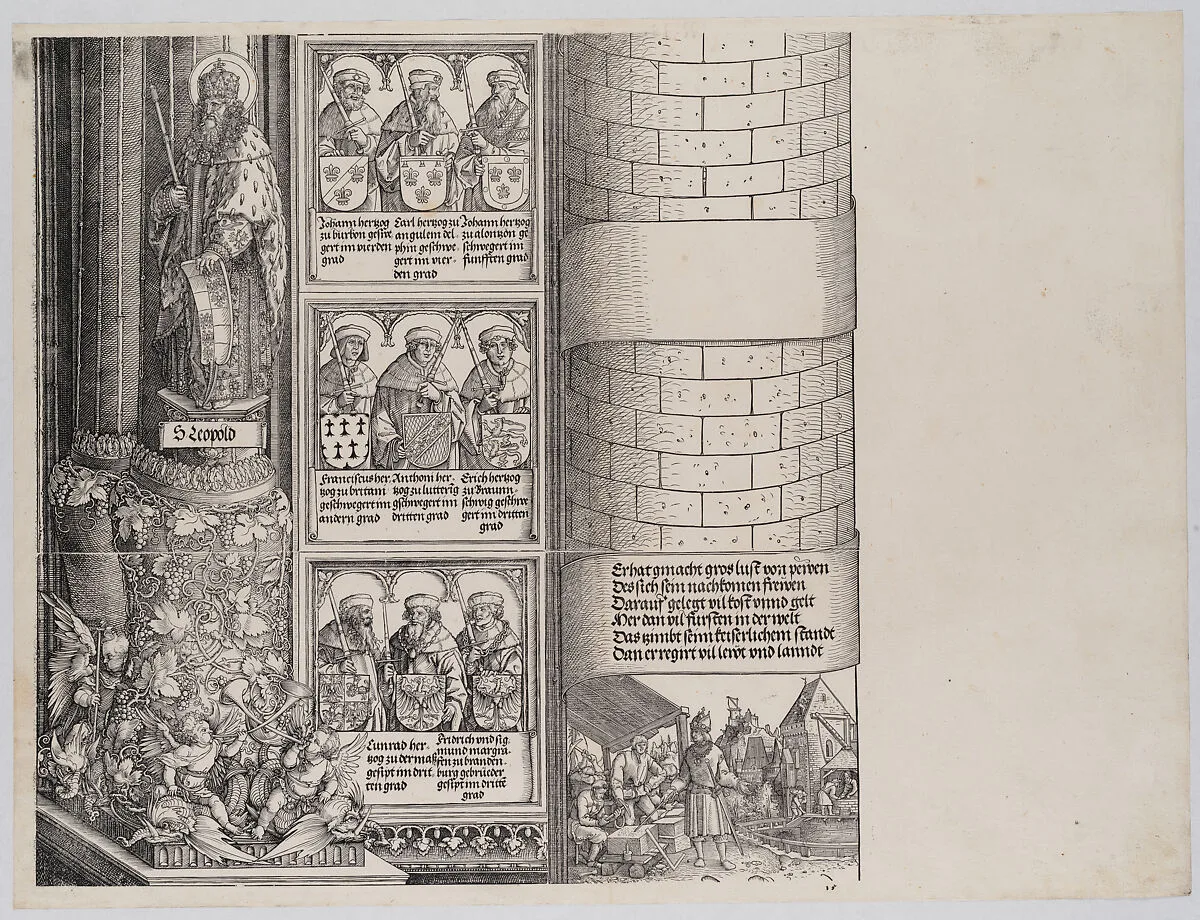 S Leopold
Johann hertzog
zu burbon geswe
gert im vierden
grad
Carl hertzog zu
angulem del
phin geschwe-
gert im vier-
den grad
Johann hertzog
zu alonzon ge
schwegert im
funfften grad
Franciscus her
tzog zu britani
geschwegert im
andern grad
Anthoni her-
tzog zu luttering
gschwegert im
dritten grad
Erich hertzog
zu Braunn-
schwig geschwe
gert im dritten
grad
Cunrad her-
tzog zu der maß
gesipt im drit
ten grad
Fridrich vnd sig
mund margra-
fen zu branden-
burg gebrüeder
gesipt im dritte
grad
Er hat gmacht gros lust von pewen
Des sich sein nachkomen frewen
Darauf gelegt vil kost vnnd gelt
Mer dan vil fursten in der welt
Das tzimbt seim keiserlichem standt
Dan er regirt vil lewt vnd lanndt
15